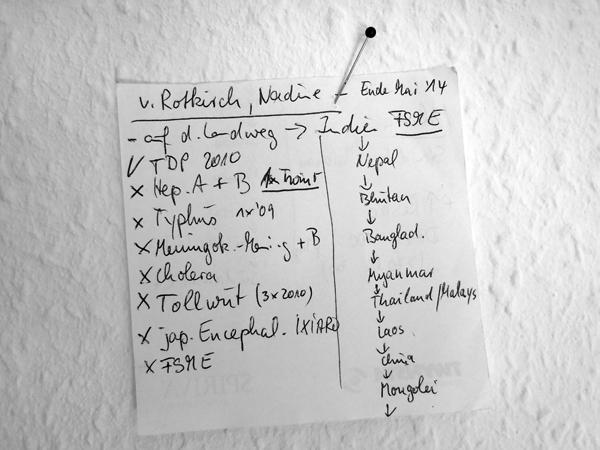 v. Rotkirch, Nadine – Ende Mai '14
– auf d. Landweg → Indien FSME
✓ TDP 2010
x Hep. A + B
x Typhus 1x'09
x Meningok.-Men.-g + B
x Cholera
x Tollwut (3x2010)
x jap. Encephal. (IXIARO)
x FSME
↓
Nepal
↓
Bhutan
↓
Banglad.
↓
Myanmar
↓
Thailand/Malays
↓
Laos
↓
China
↓
Mongolei
↓